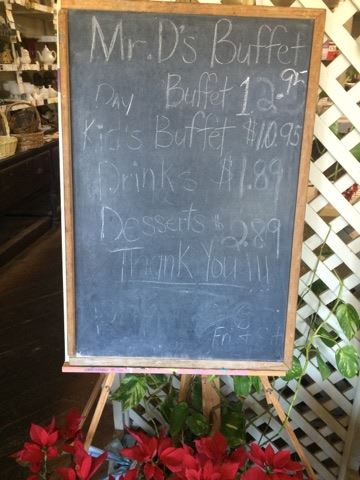 Mr. D's Buffet
Day Buffet 12.95
Kid's Buffet $10.95
Drinks $1.89
Desserts $2.89
Thank You!!!
Fri